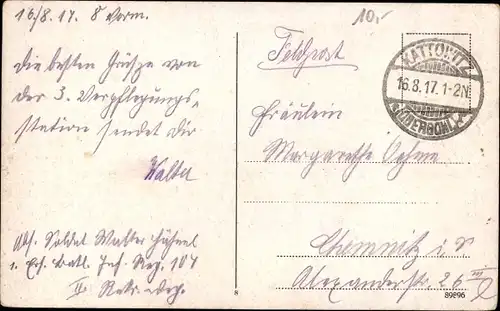 16./8. 17. 8 Vorm.
Die besten Grüße von
der 3. Verpflegungs-
station sendet dir
Walter
Abs. Soldat Walter Hähnel
1. Ers. Batl. Inf. Reg. 107
II. Rekr. Dep.
10,-
Feldpost
KATTOWITZ
16.8.17.1-2N
(OBERSCHL.)
Fräulein
Margarethe Oehme
Chemnitz i. S.
Alexanderstr. 26 III
8
89896